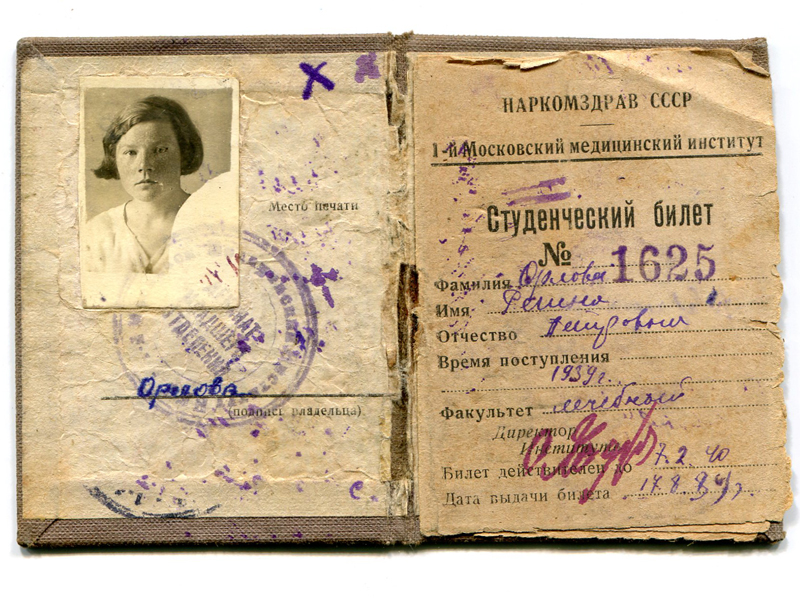 Место печати
Орлова
(подпись владельца)
НАРКОМЗДРАВ СССР
1-й Московский медицинский институт
Студенческий билет
№ 1625
Фамилия Орлова
Имя
Отчество
Время поступления
1939г.
Факультет лечебный
Директор
Института
Билет действителен до 7.2.40
Дата выдачи билета